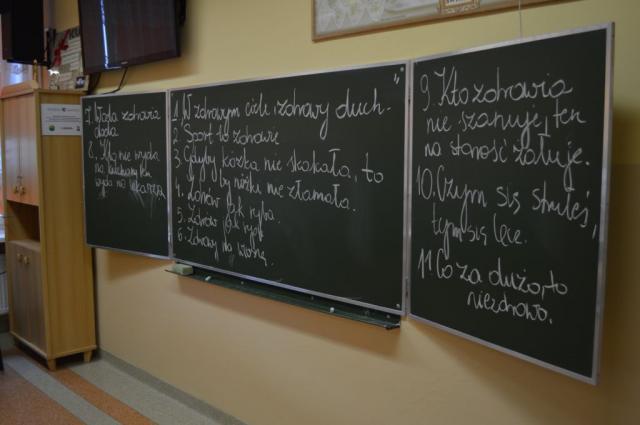 1. W zdrowym ciele, zdrowy duch.
2. Sport to zdrowie
3. Gdyby kózka nie skakała, to
by nóżki nie złamała.
4. Zdrów jak ryba.
5. Zdrów jak rydz
6. Zdrowy na wiosnę.
7. Woda zdrowia
doda
8. Kto nie wyda
na ten
wyda na lekarza
9. Kto zdrowia
nie szanuje, ten
na starość żałuje.
10. Czym się strułeś,
tym się lecz.
11 Co za dużo, to
niezdrowo.